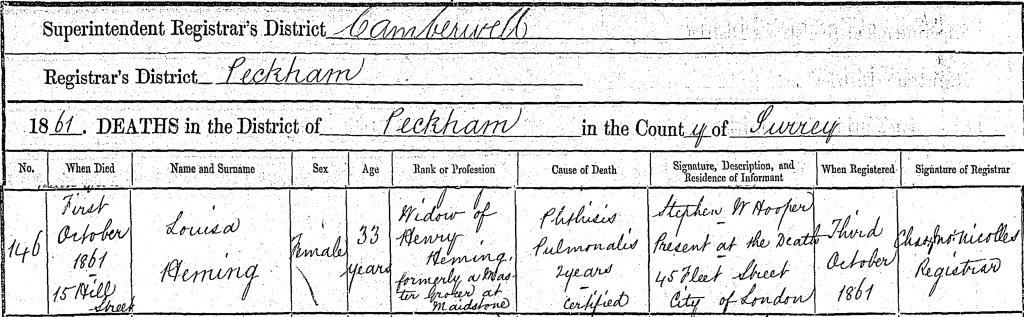 Superintendent Registrar's District Camberwell
Registrar's District Peckham
1861. DEATHS in the District of Peckham in the County of Surrey
No. When Died Name and Surname Sex Age Rank or Profession Cause of Death Signature, Description, and Residence of Informant When Registered Signature of Registrar
146
First
October
1861
15 Hill
Street
Louisa
Heming
Female
33
years
Widow of
Henry
Heming,
formerly a Mas-
ter Grocer at
Maidstone
Phthisis
Pulmonalis
2 years
Certified
Stephen W Hooper
Present at the Death
45 Fleet Street
City of London
Third
October
1861
Nicolles
Registrar